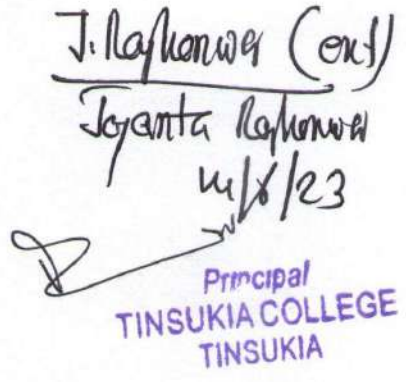 J. Rajkonwer (Ext)
Jayanta Rajkonwer
/23
Principal
TINSUKIA COLLEGE
TINSUKIA